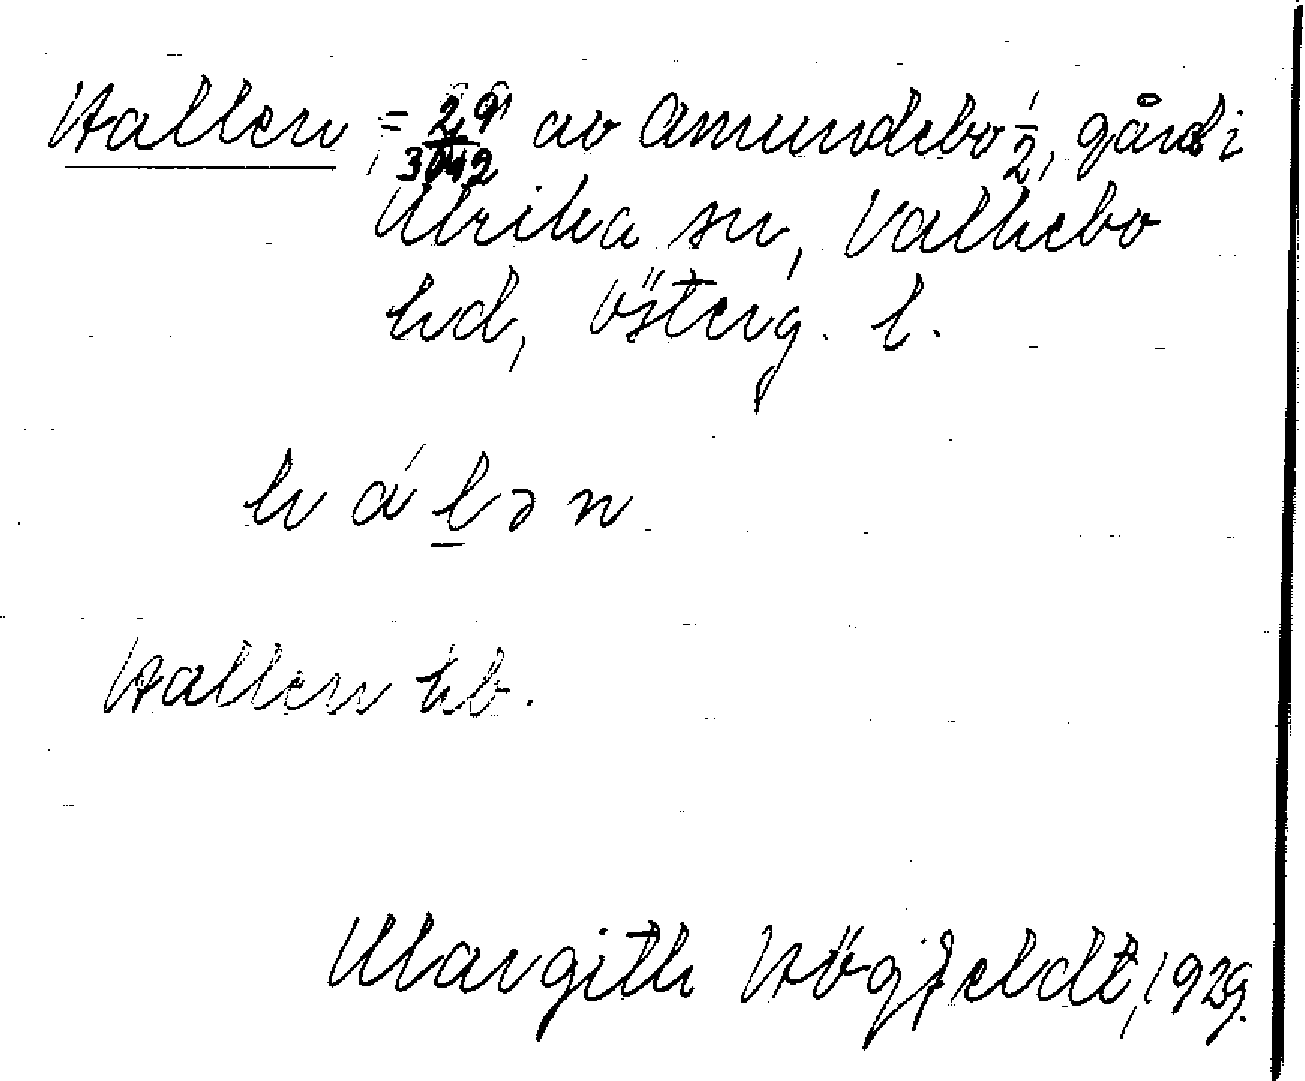 Hallen, = 29/3042 av Amundebo 1/2, gård i
Ulrika sn, Valkebo
hd, Österg. l.
h á l ə n
Hallen kb.
Margith Högfeldt, 1929.